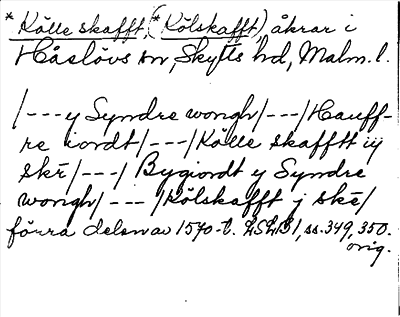 * Kölle skafft, (* Kölskafft,) åkrar i
Håslövs sn, Skytts hd, Malm. l.
/---y Syndre wongh/---/Hauff-
re iordt/---/Kölle skafftt iij
skē/---/ Bygiordt y Syndre
wongh/---/Kölskafft j skē/
förra delen av 1570-t. LSLB1, ss. 349, 350.
orig.